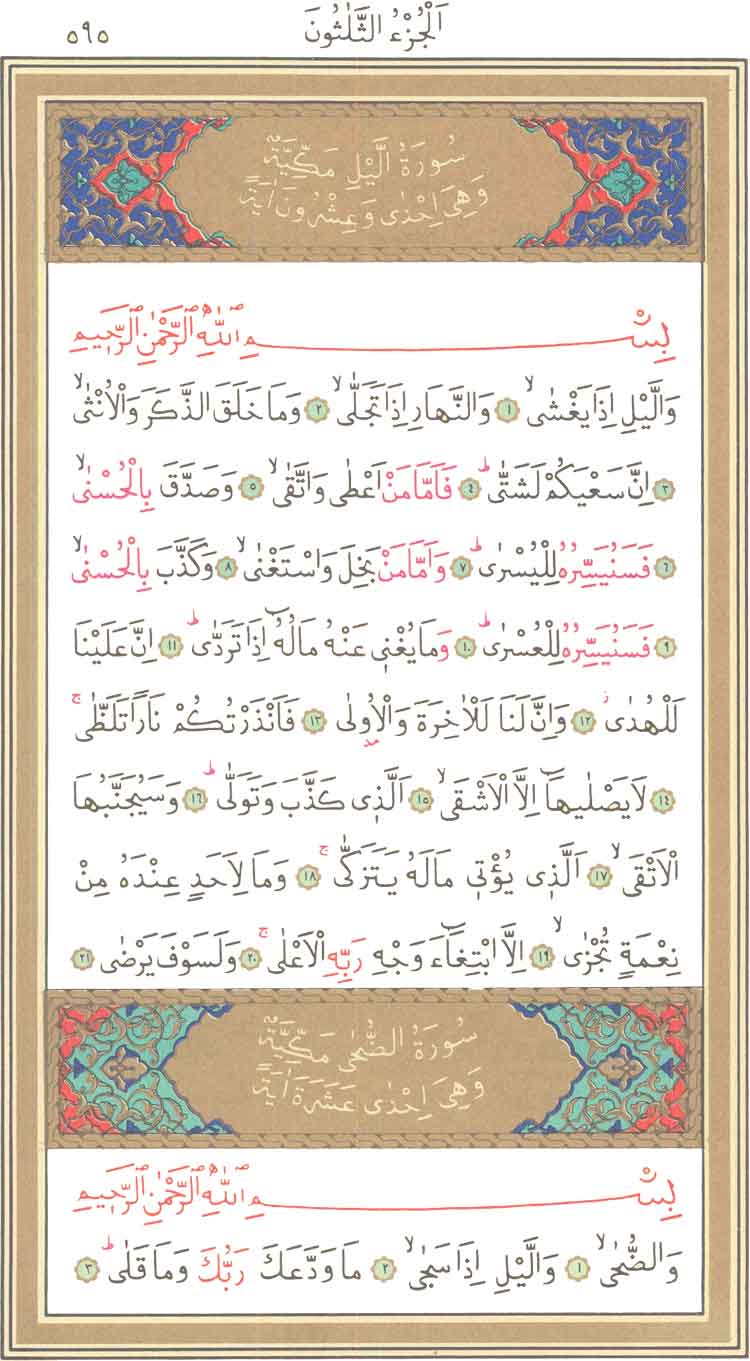 اَلْجُزْءُ الثَّلٰثُونَ
٥٩٥
سُورَةُ الَّيْلِ مَكِّيَّةٌ
وَهِيَ اِحْدٰى وَعِشْرُونَ اٰيَةً
بِسْمِ اللّٰهِ الرَّحْمٰنِ الرَّحِيمِ
وَالَّيْلِ اِذَا يَغْشٰىۙ ١ وَالنَّهَارِ اِذَا تَجَلّٰىۙ ٢ وَمَا خَلَقَ الذَّكَرَ وَالْاُنْثٰىۙ
٣ اِنَّ سَعْيَكُمْ لَشَتّٰىۜ ٤ فَاَمَّا مَنْ اَعْطٰى وَاتَّقٰىۙ ٥ وَصَدَّقَ بِالْحُسْنٰىۙ
٦ فَسَنُيَسِّرُهُ لِلْيُسْرٰىۜ ٧ وَاَمَّا مَنْ بَخِلَ وَاسْتَغْنٰىۙ ٨ وَكَذَّبَ بِالْحُسْنٰىۙ
٩ فَسَنُيَسِّرُهُ لِلْعُسْرٰىۜ ١٠ وَمَا يُغْنٖي عَنْهُ مَالُهُٓ اِذَا تَرَدّٰىۜ ١١ اِنَّ عَلَيْنَا
لَلْهُدٰىؗ ١٢ وَاِنَّ لَنَا لَلْاٰخِرَةَ وَالْاُو۫لٰى ١٣ فَاَنْذَرْتُكُمْ نَارًا تَلَظّٰىۚ
١٤ لَا يَصْلٰيهَٓا اِلَّا الْاَشْقٰىۙ ١٥ اَلَّذٖي كَذَّبَ وَتَوَلّٰىۜ ١٦ وَسَيُجَنَّبُهَا
الْاَتْقٰىۙ ١٧ اَلَّذٖي يُؤْتٖي مَالَهُ يَتَزَكّٰىۚ ١٨ وَمَا لِاَحَدٍ عِنْدَهُ مِنْ
نِعْمَةٍ تُجْزٰىۙ ١٩ اِلَّا ابْتِغَٓاءَ وَجْهِ رَبِّهِ الْاَعْلٰىۚ ٢٠ وَلَسَوْفَ يَرْضٰى ٢١
سُورَةُ الضُّحٰى مَكِّيَّةٌ
وَهِيَ اِحْدٰى عَشَرَةَ اٰيَةً
بِسْمِ اللّٰهِ الرَّحْمٰنِ الرَّحِيمِ
وَالضُّحٰىۙ ١ وَالَّيْلِ اِذَا سَجٰىۙ ٢ مَا وَدَّعَكَ رَبُّكَ وَمَا قَلٰىۜ ٣